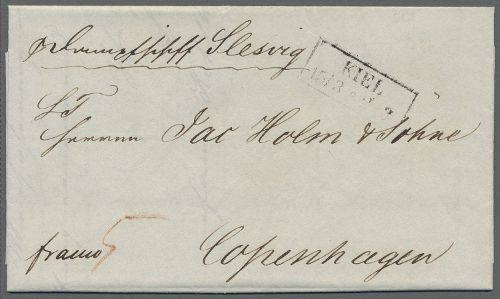 pr Dampfschiff Slesvig
KIEL
15/3
ST
Herren Jac Holm & Sohne
franco 5
Copenhagen